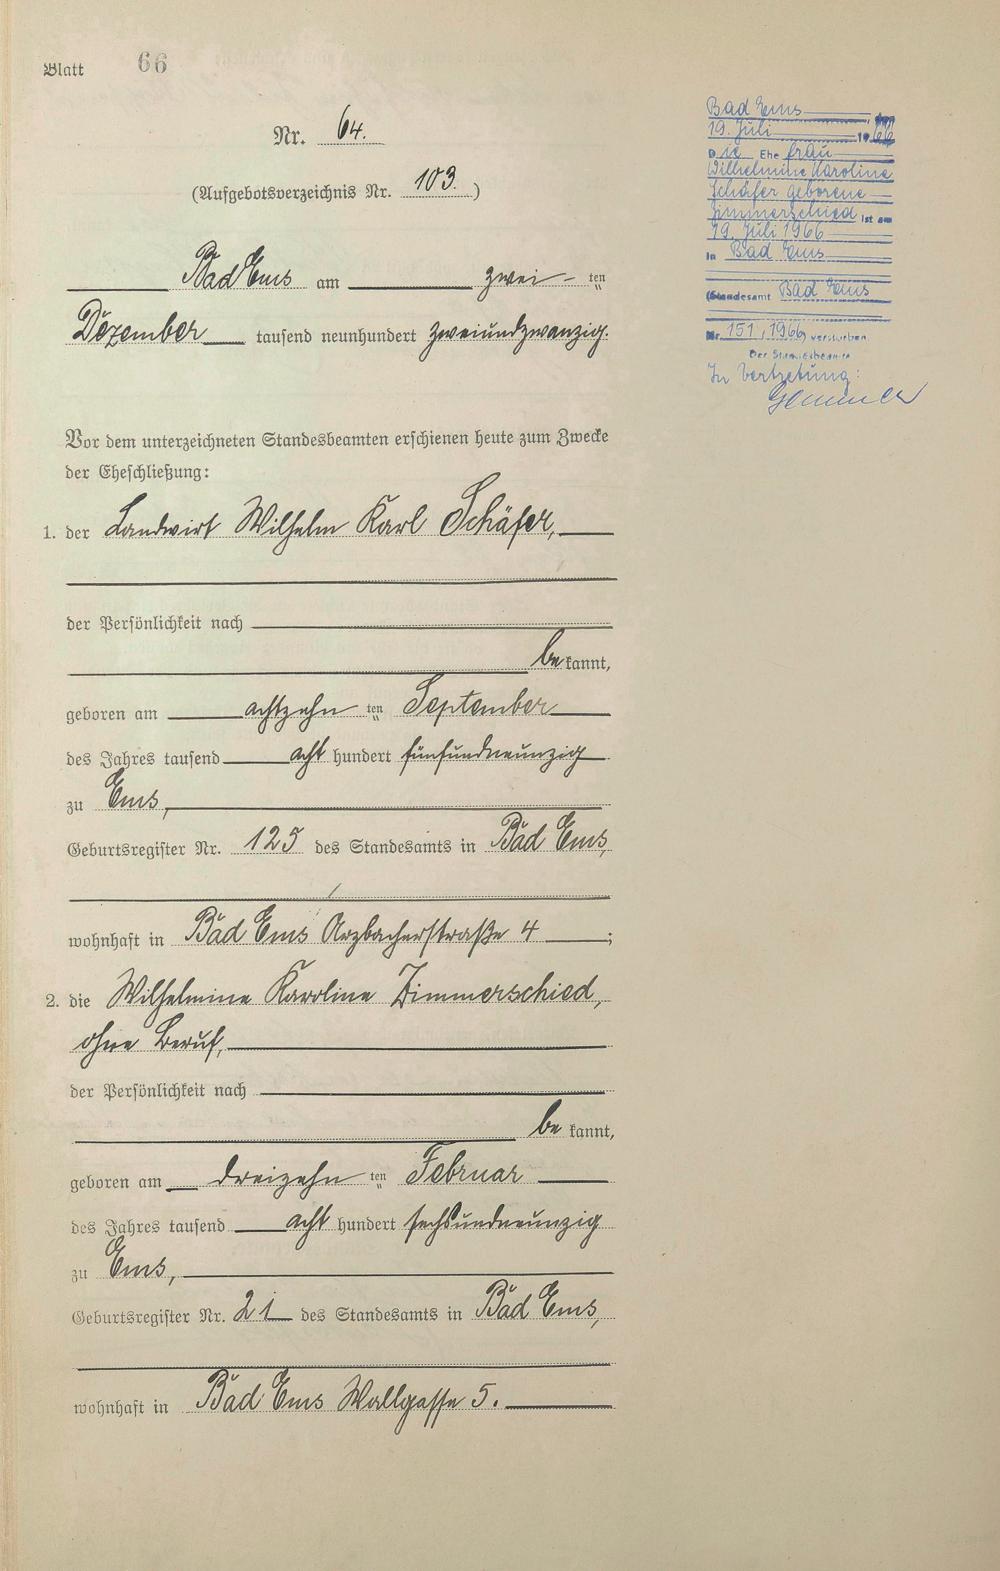 Blatt 66
Nr. 64.
(Aufgebotsverzeichnis Nr. 103.)
Bad Ems am zwei-ten
Dezember tausend neunhundert zweiundzwanzig.
Vor dem unterzeichneten Standesbeamten erschienen heute zum Zwecke
der Eheschließung:
1. der Landwirt Wilhelm Karl Schäfer,
der Persönlichkeit nach
bekannt,
geboren am achtzehnten September
des Jahres tausend acht hundert fünfundneunzig
zu Ems,
Geburtsregister Nr. 125 des Standesamts in Bad Ems,
wohnhaft in Bad Ems Arzbacherstraße 4;
2. die Wilhelmine Karoline Zimmerschied,
ohne Beruf,
der Persönlichkeit nach
bekannt,
geboren am dreizehnten Februar
des Jahres tausend acht hundert sechsundneunzig
zu Ems,
Geburtsregister Nr. 21 des Standesamts in Bad Ems,
wohnhaft in Bad Ems Wallgasse 5.
Bad Ems, den
19. Juli 1966
Die Ehefrau
Wilhelmine Karoline
Schäfer geborene
Zimmerschied ist am
19. Juli 1966
in Bad Ems
(Standesamt Bad Ems
Nr. 151/1966) verstorben
Der Standesbeamte
In Vertretung: